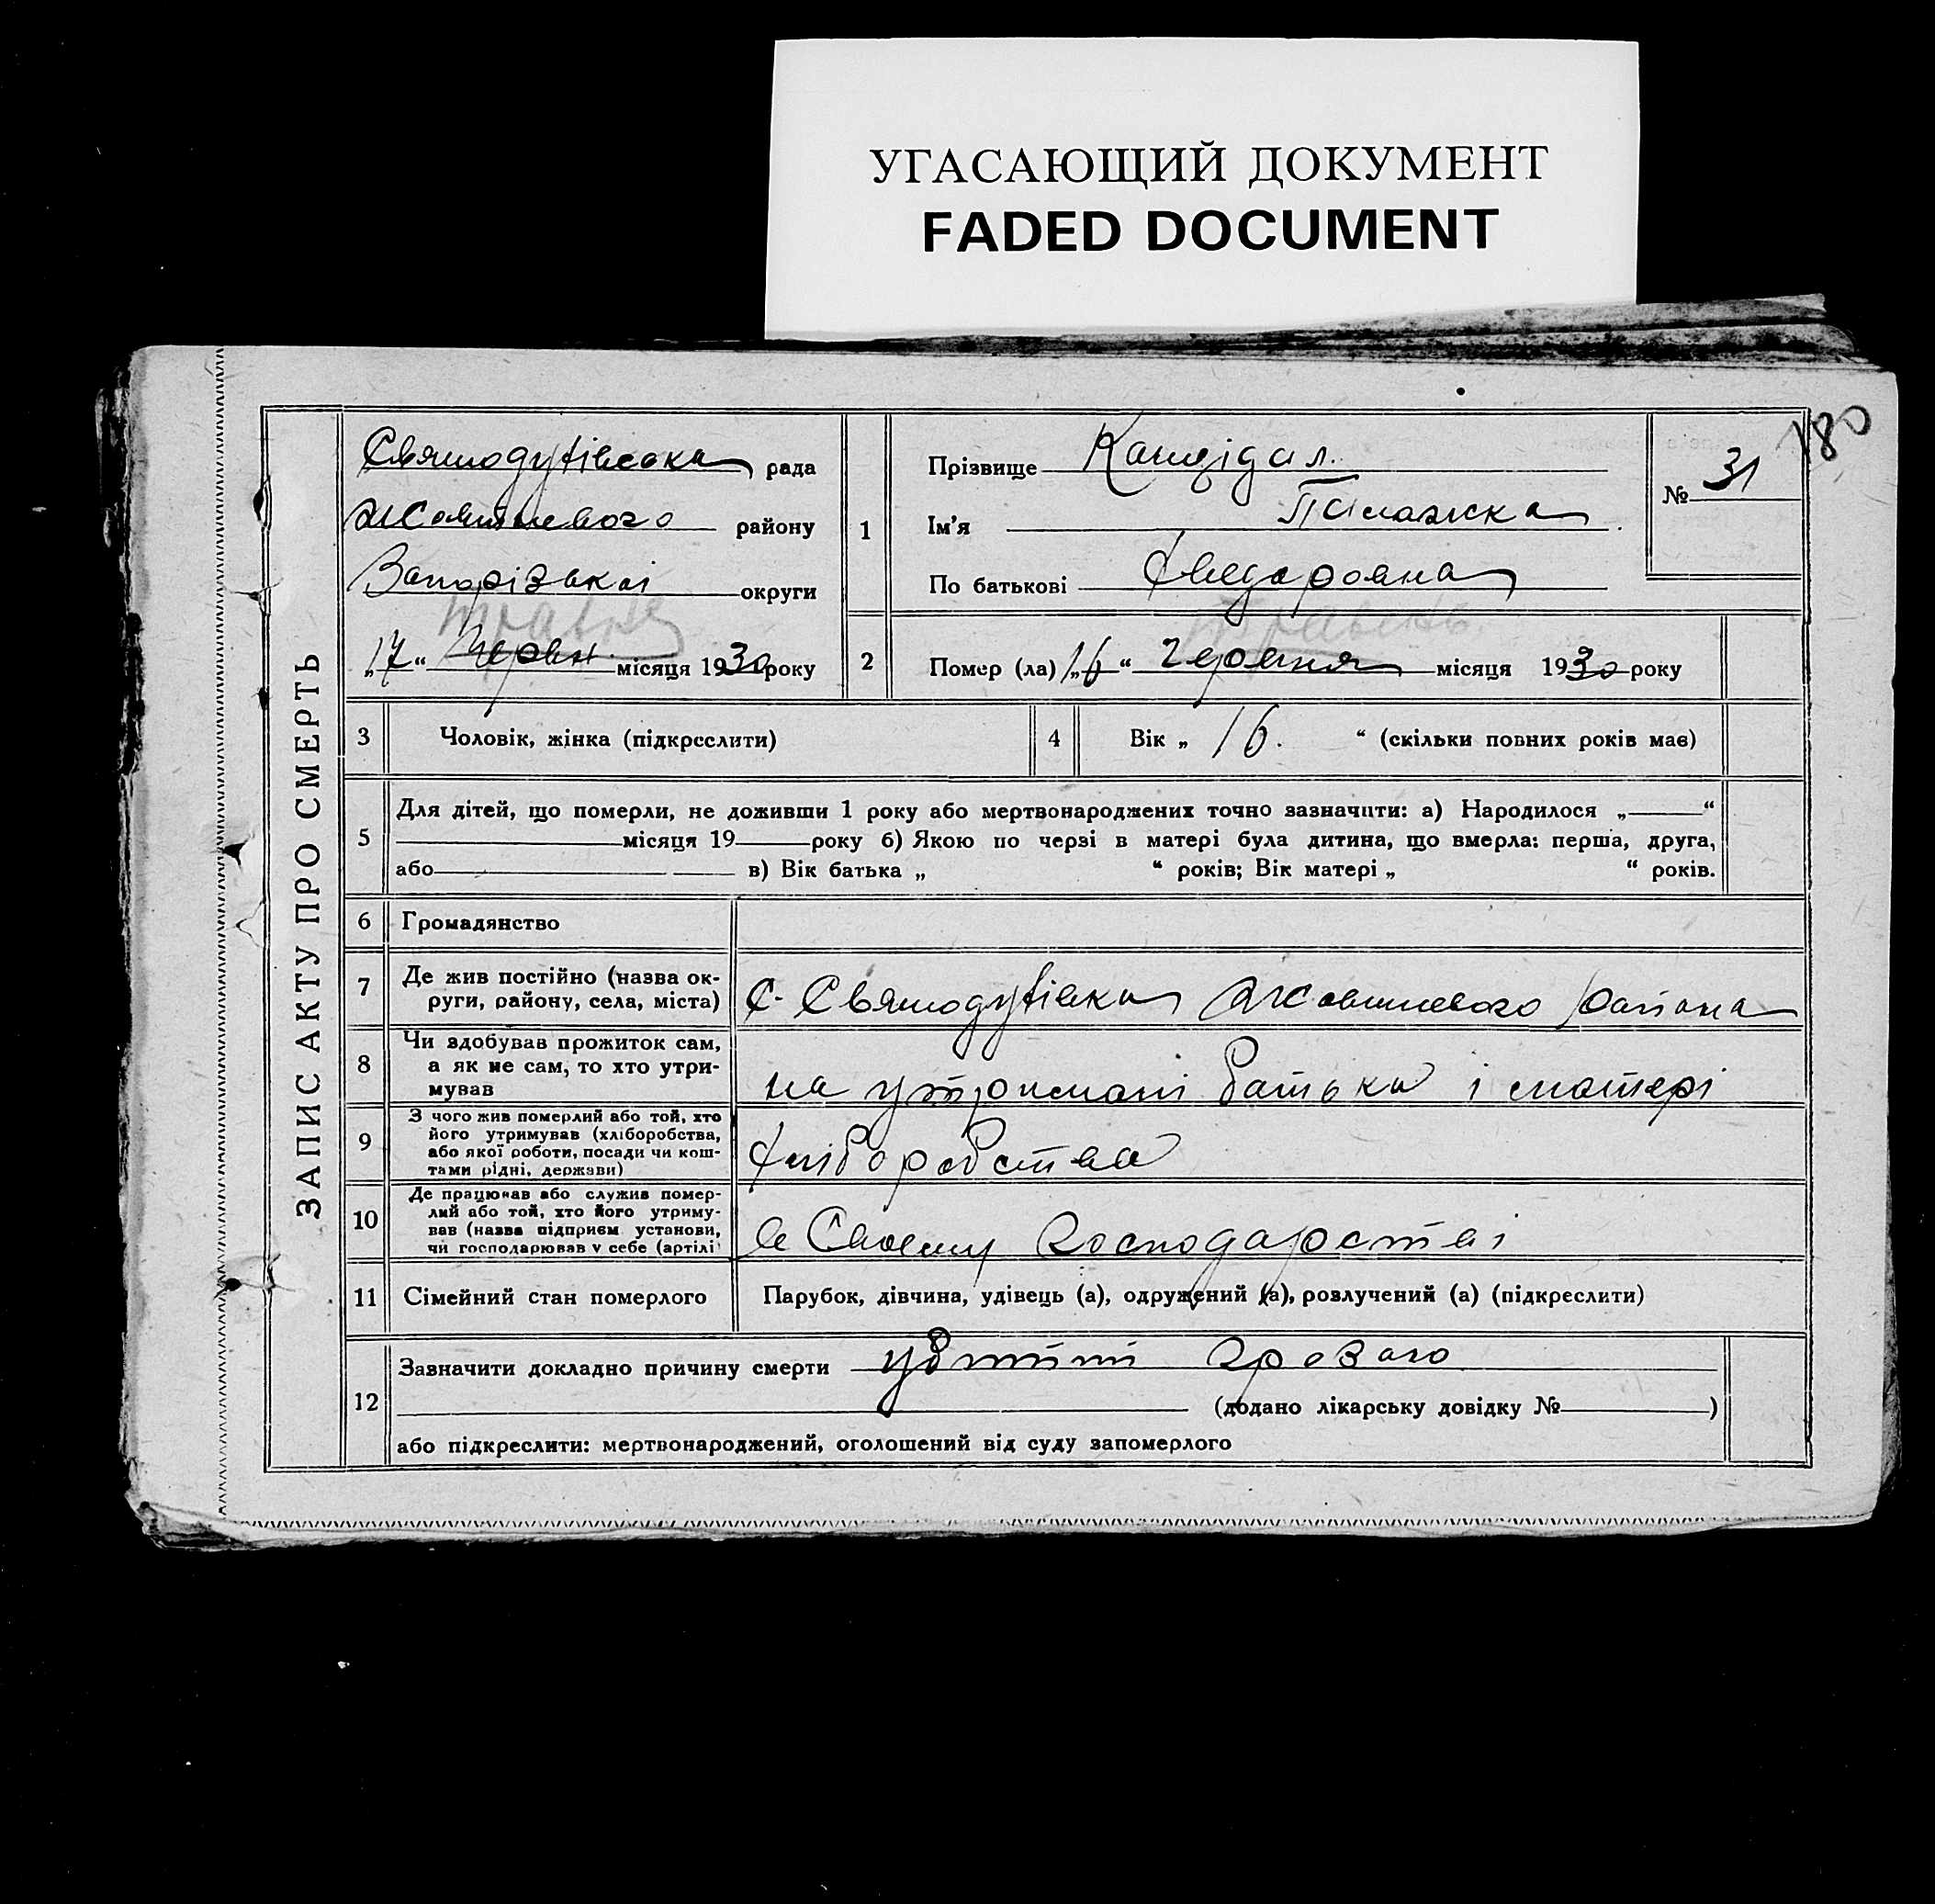 УГАСАЮЩИЙ ДОКУМЕНТ
FADED DOCUMENT
180
ЗАПИС АКТУ ПРО СМЕРТЬ
Святодухівська рада
Жовтневого району
Запорізькоі округи
травня
„17“ Червн місяця 1930 року
1
Прізвище
Ім'я Палажка
По батькові Хведоровна
№ 31
травень
2 Помер (ла) „16“ Червня місяця 1930 року
3 Чоловік, жінка (підкреслити)
4 Вік „ 16. “ (скільки повних років має)
5 Для дітей, що померли, не доживши 1 року або мертвонароджених точно зазначити: а) Народилося „ “
місяця 19 року б) Якою по черзі в матері була дитина, що вмерла: перша, друга,
або в) Вік батька „ “ років; Вік матері „ “ років.
6 Громадянство
7 Де жив постійно (назва ок-
руги, району, села, міста) С. Святодухівка Жовтневого района
8 Чи здобував прожиток сам,
а як не сам, то хто утри-
мував на утримані батька і матері
9 З чого жив померлий або той, хто
його утримував (хліборобства,
або якої роботи, посади чи кош-
тами рідні, держави) Хліборобства
10 Де працював або служив помер-
лий або той, хто його утриму-
вав (назва підприєм установи,
чи господарював у себе (артілі) в Своему господарстві
11 Сімейний стан померлого Парубок, дівчина, удівець (а), одружений (а), розлучений (а) (підкреслити)
12 Зазначити докладно причину смерти
(додано лікарську довідку № )
або підкреслити: мертвонароджений, оголошений від суду запомерлого